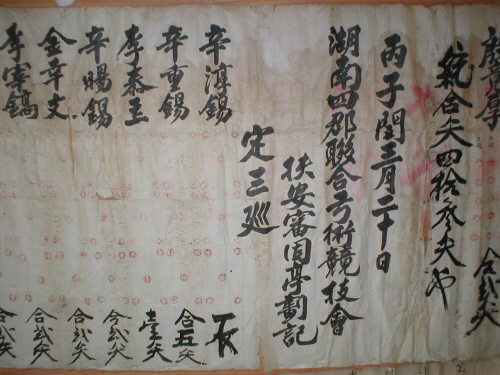 合貳矢
合矢四拾參矢
丙子閏三月二十日
湖南四郡聯合弓術競技會
扶安審固亭劃記
定三巡
辛淳錫 合五矢
辛重錫 壹矢
李泰圭 合貳矢
辛暘錫 合貳矢
金幸文 合貳矢
李宰鎬 合貳矢